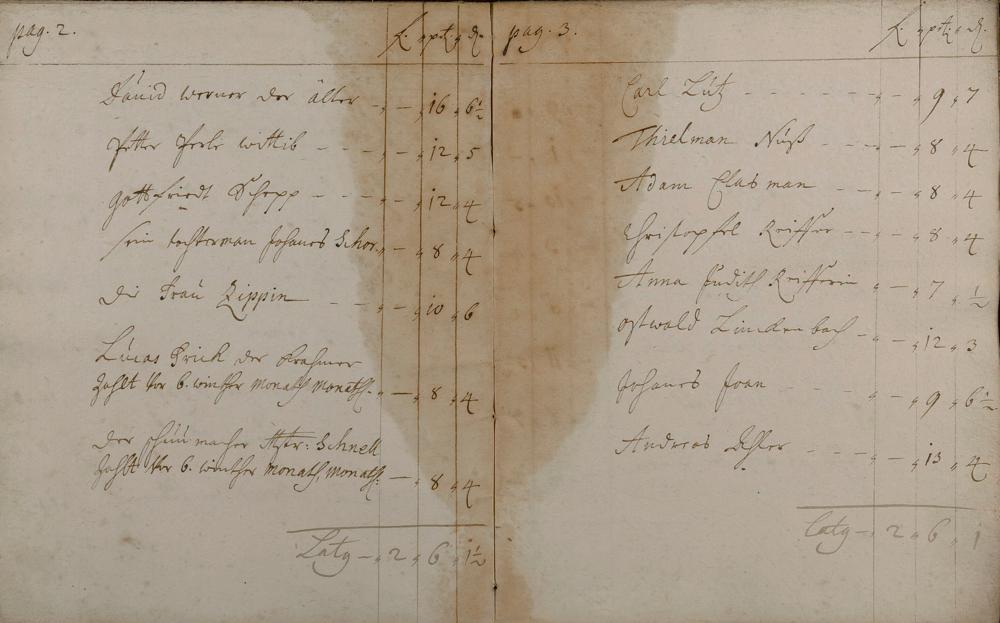 pag. 2.
David Werner der älter - " - " 16 " 6½
Petter Perle wittib - - " - " 12 " 5
Gottfriedt Schepp - - " - " 12 " 4
sein tochterman Johanes Schor " - " 8 " 4
Die Frau Zippin - - " - " 10 " 6
Lucas Frick der Krahmer
zahlt vor 6. winther Monath, Monath. " - " 8 " 4
Der schumacher Mstr: Schnell
zahlt vor 6. winther Monath, Monath. - " 8 " 4
Latg - " 2 " 6 " 1½
pag. 3.
Carl Lutz - - - - " - " 9 " 7
Thielman Nuß - - - " - " 8 " 4
Adam Clasman - - " - " 8 " 4
Christopfel Reiffer - - " - " 8 " 4
Anna Judith Reifferin " - " 7 " ½
Ostwald Lindenbach - " - " 12 " 3
Johanes Joan - - " - " 9 " 6½
Andreas - - - " - " 13 " 4
Latg - " 2 " 6 " 1